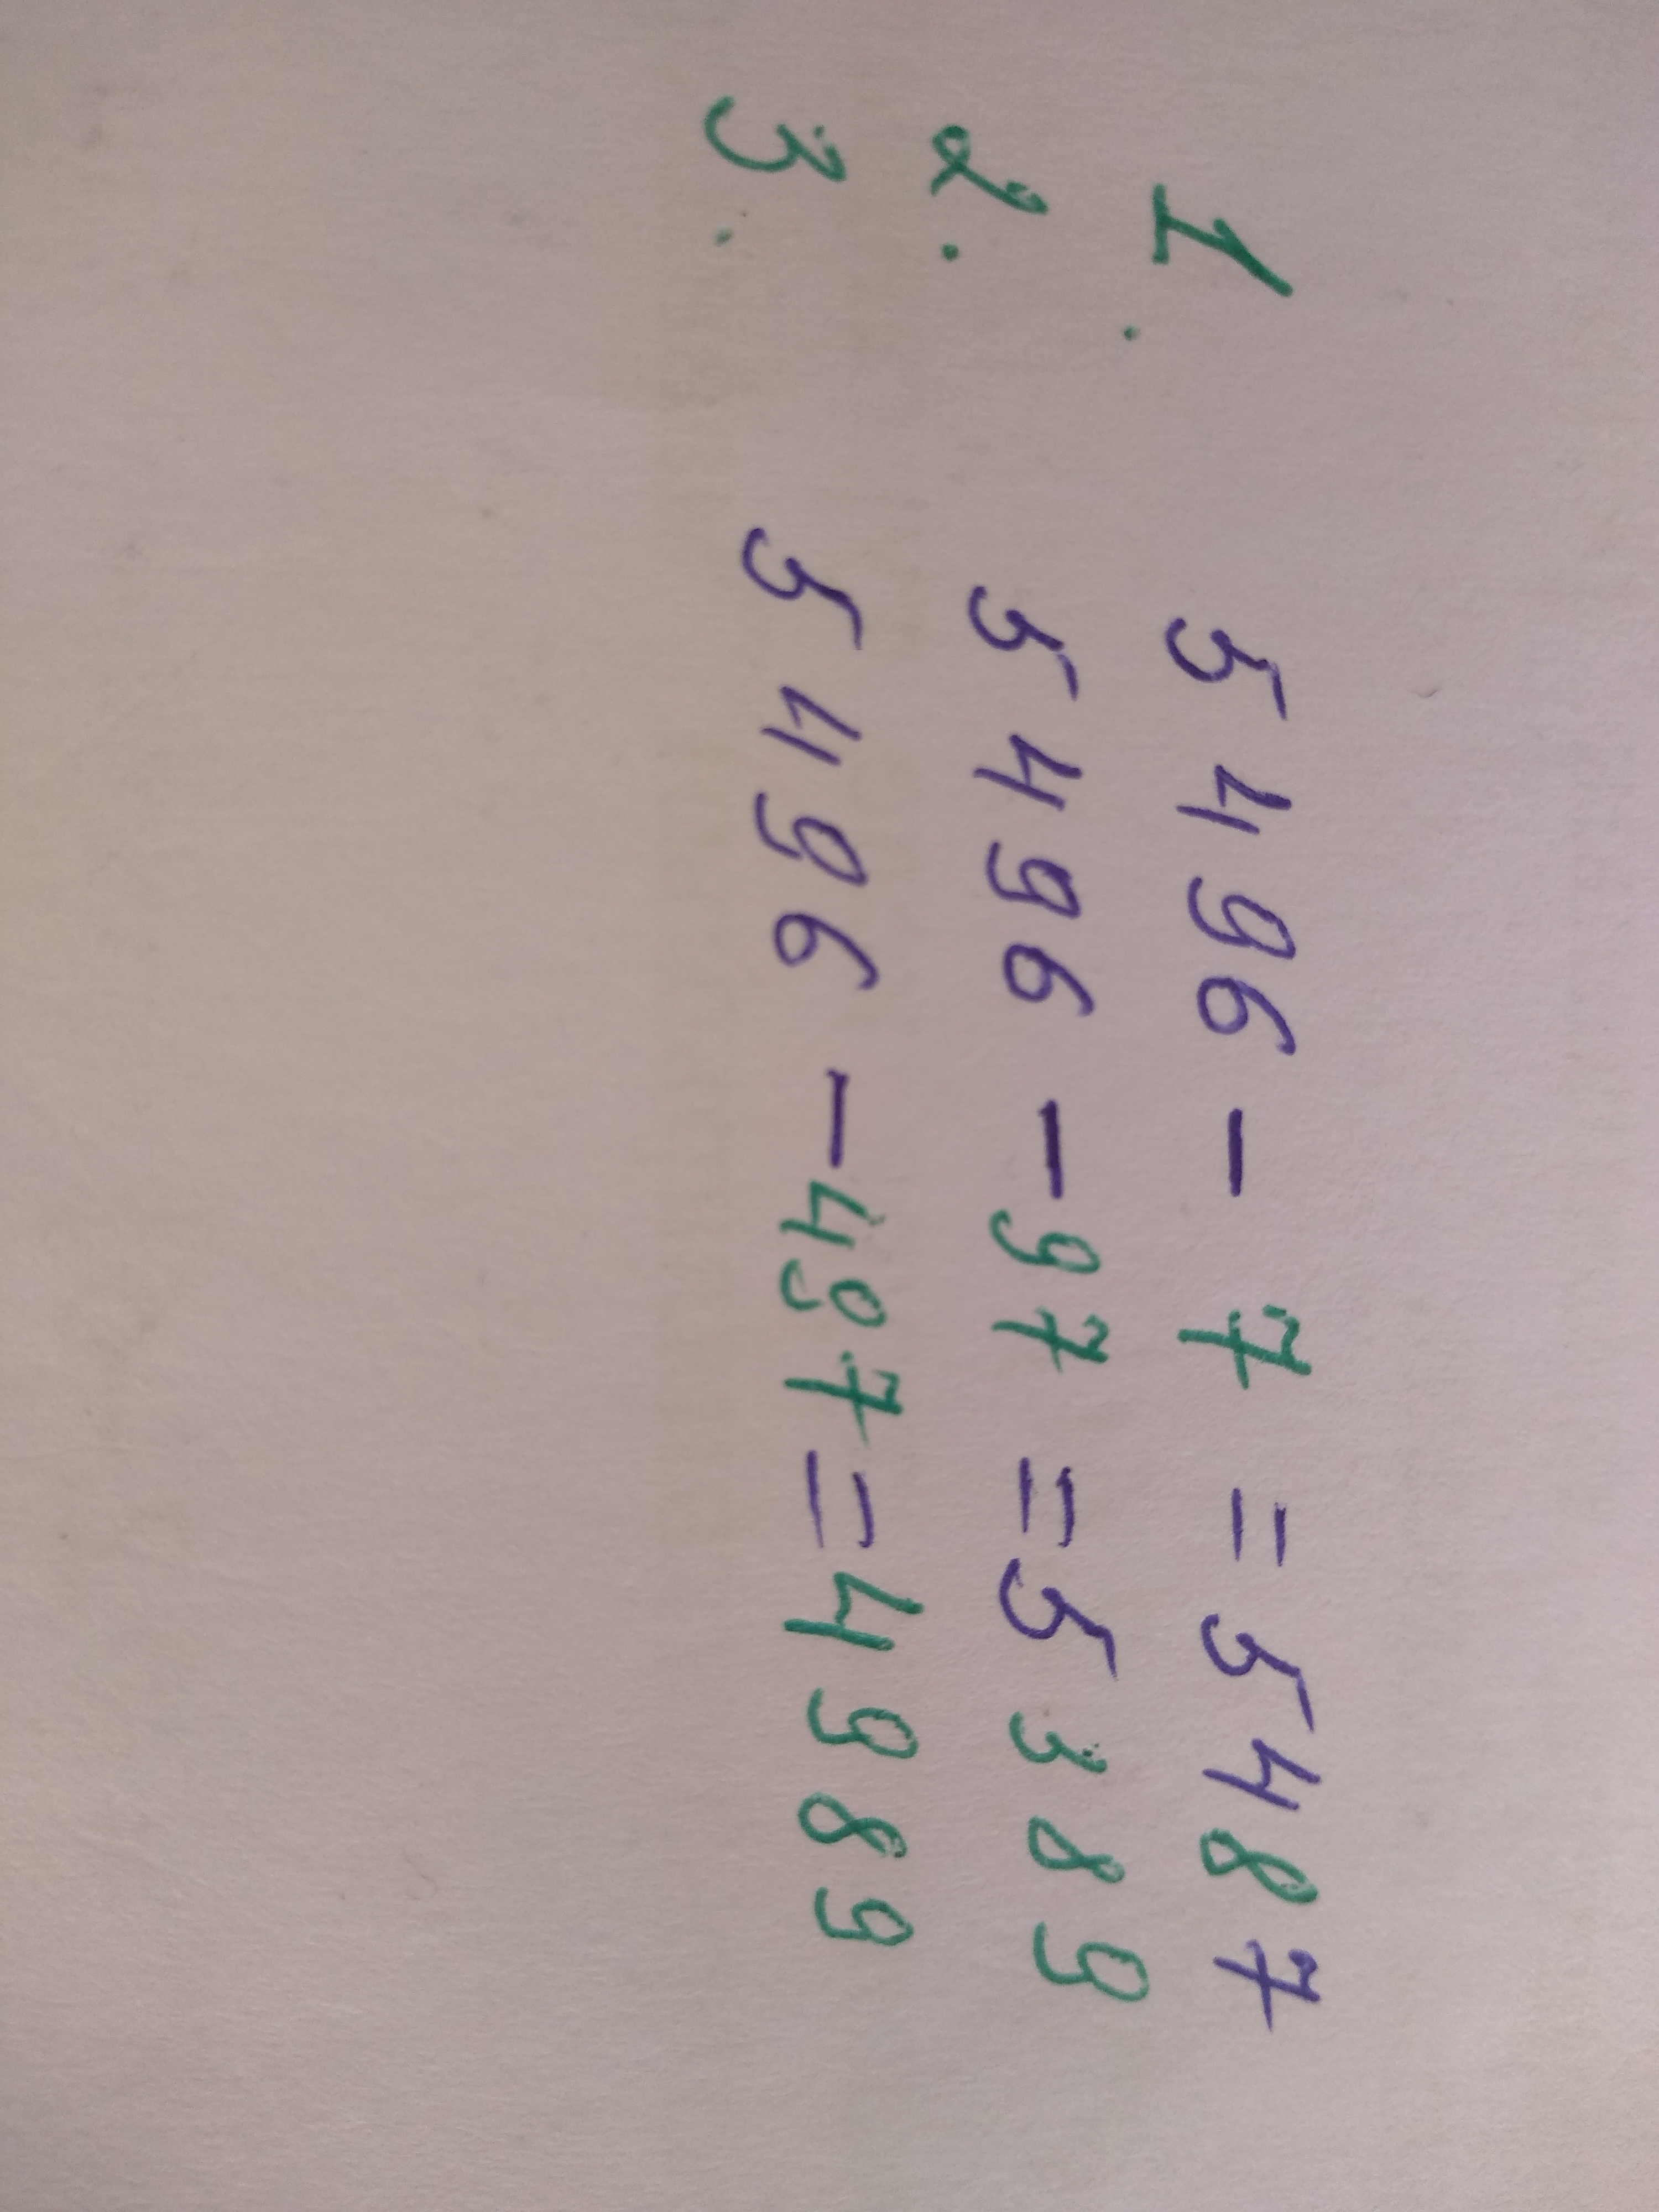 1. 5496 - 7 = 5487
2. 5496 - 97 = 5389
3. 5496 - 497 = 4989